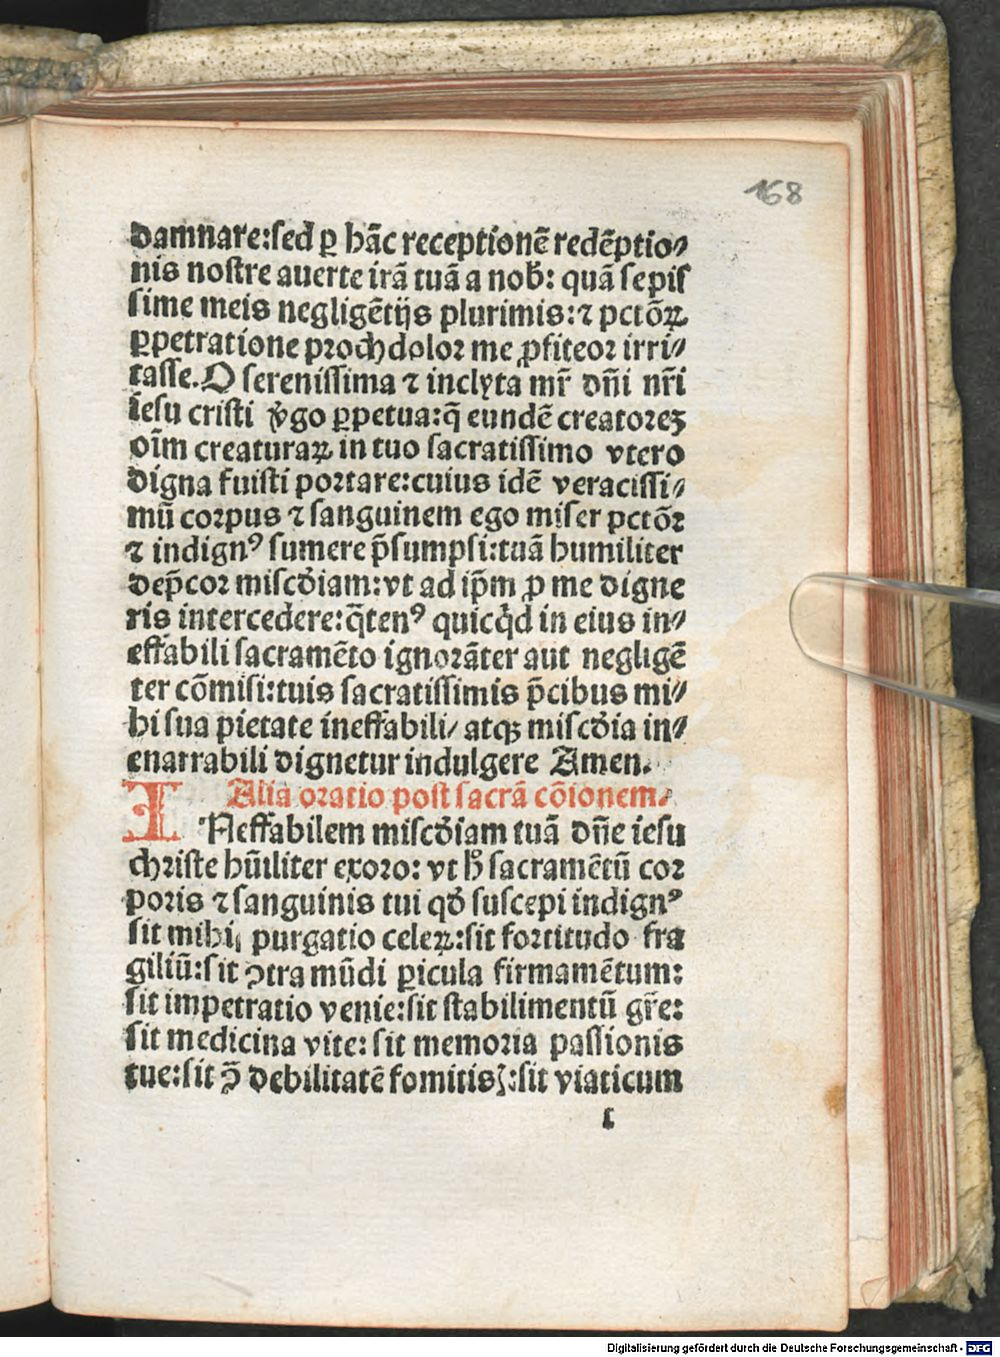 168
damnare:sed ꝑ hāc receptionē redēptio⸗
nis nostre auerte irā tuā a nob̄: quā sepiſ
sime meis negligētijs plurimis:⁊ pctōꝝ
ꝑpetratione proch dolor me ꝓfiteor irri⸗
tasse.O serenissima ⁊ inclyta mr̄ dn̄i nr̄i
iesu cristi v̾go ꝑpetua:q̄ eundē creatoreꝫ
oīm creaturaꝝ in tuo sacratissimo vtero
digna fuisti portare:cuius idē veracissi⸗
mū corpus ⁊ sanguinem ego miser pctōr
⁊ indignꝰ sumere p̄sumpsi:tuā humiliter
dep̄cor misc̄diam:vt ad ip̄m ꝓ me digne
ris intercedere:q̄tenꝰ quicq̇d in eius in⸗
effabili sacramēto ignorāter aut negligē
ter cōmisi:tuis sacratissimis p̄cibus mi⸗
hi sua pietate ineffabili/ atqꝫ misc̄dia in⸗
enarrabili dignetur indulgere Amen.
Alia oratio post sacrā cōionem.
INeffabilem misc̄diam tuā dn̄e iesu
christe hūīliter exoro: vt h̄ sacramētū cor
poris ⁊ sanguinis tui qd̄ suscepi indignꝰ
sit mihi purgatio celeꝝ:sit fortitudo fra
giliū:sit ꝯtra mūdi ꝑicula firmamētum:
sit impetratio venie:sit stabilimentū gr̄e:
sit medicina vite: sit memoria passionis
tue:sit ꝯ̄ debilitatē fomitis:sit viaticum
ſ
Digitalisierung gefördert durch die Deutsche Forschungsgemeinschaft - DFG